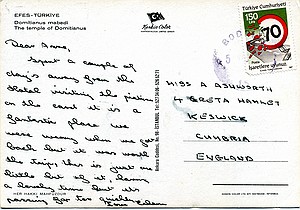 EFES - TÜRKİYE
Domitianus mabedi
The temple of Domitianus
Keskin Color
Dear Anne,
Spent a couple of
day's away from the
hotel visiting the
on the card it is a
fantastic place we
were weary when we got
back but it was worth
the trip this is just one
little bit of it. having
a lovely time but it's
passing far too quickly
Love
HER HAKKI MAHFUZDUR
Ankara Caddesi, No.
Türkiye Cumhuriyeti
150 LİRA
70
İşaretlere uyunuz
MISS A ASHWORTH
4 GRETA HAMLET
KESWICK
CUMBRIA
ENGLAND